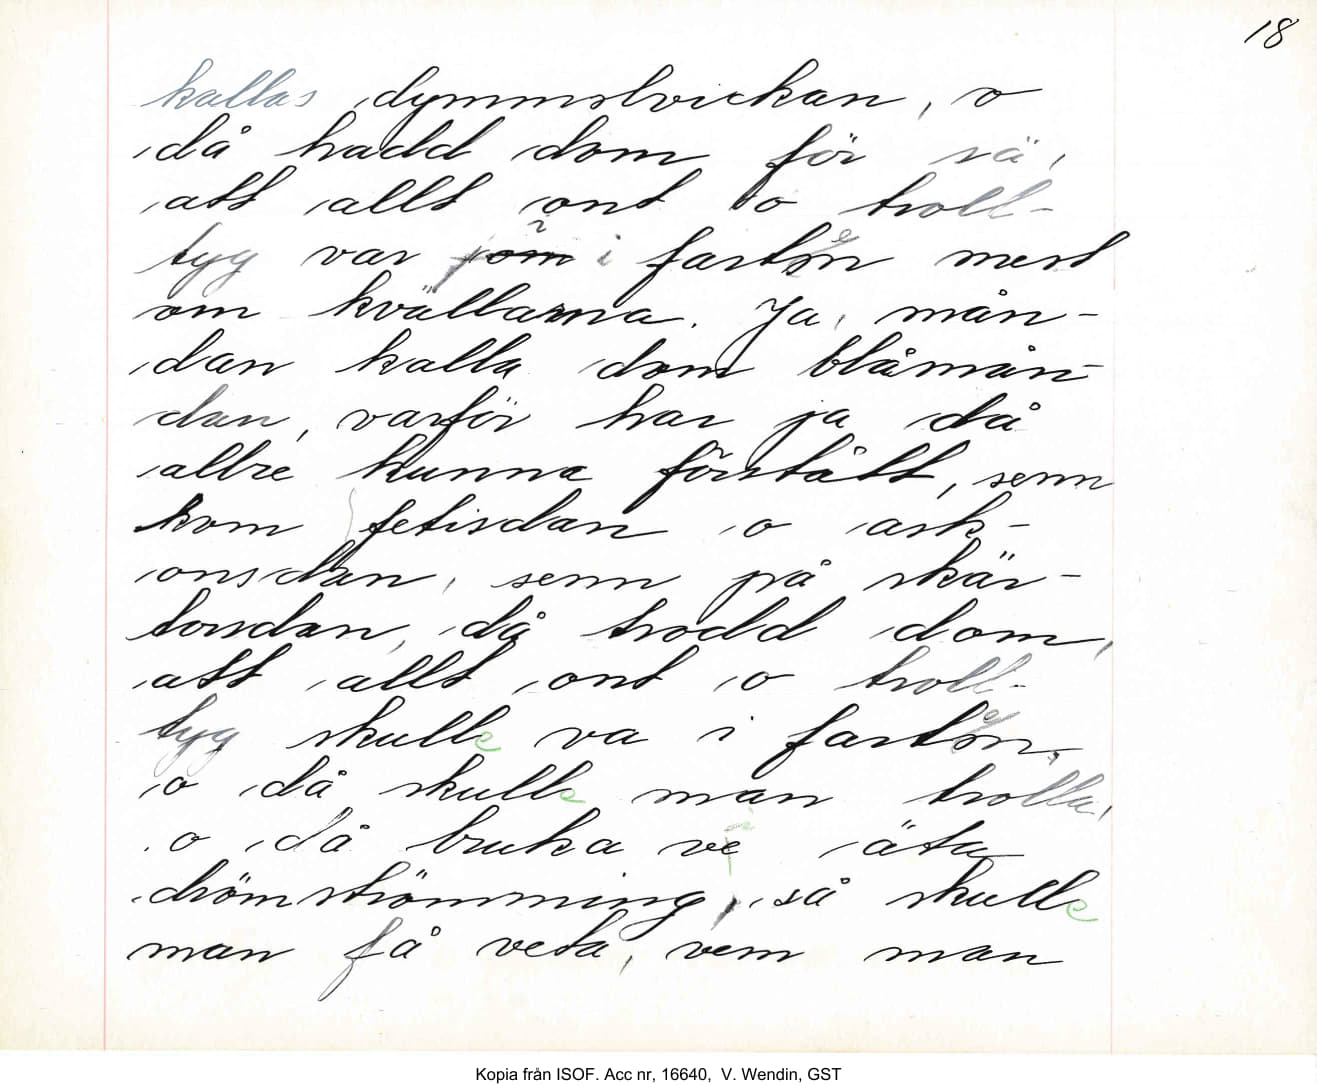 18
kallas dymmelvickan, o
då hadd dom för sä,
att allt ont o troll-
tyg var i farten mest
om kvällarna. Ja, mån-
dan kalla dom blåmån-
dan, varför har ja då
allre kunna förstått, senn
kom fetisdan o ask-
onsdan, senn på skär-
torsdan, då trodd dom,
att allt ont o troll-
tyg skulle va i farten,
o då skulle man trolla,
o då bruka vi äta
drömströmming, så skulle
man få veta, vem man
Kopia från ISOF. Acc nr, 16640, V. Wendin, GST